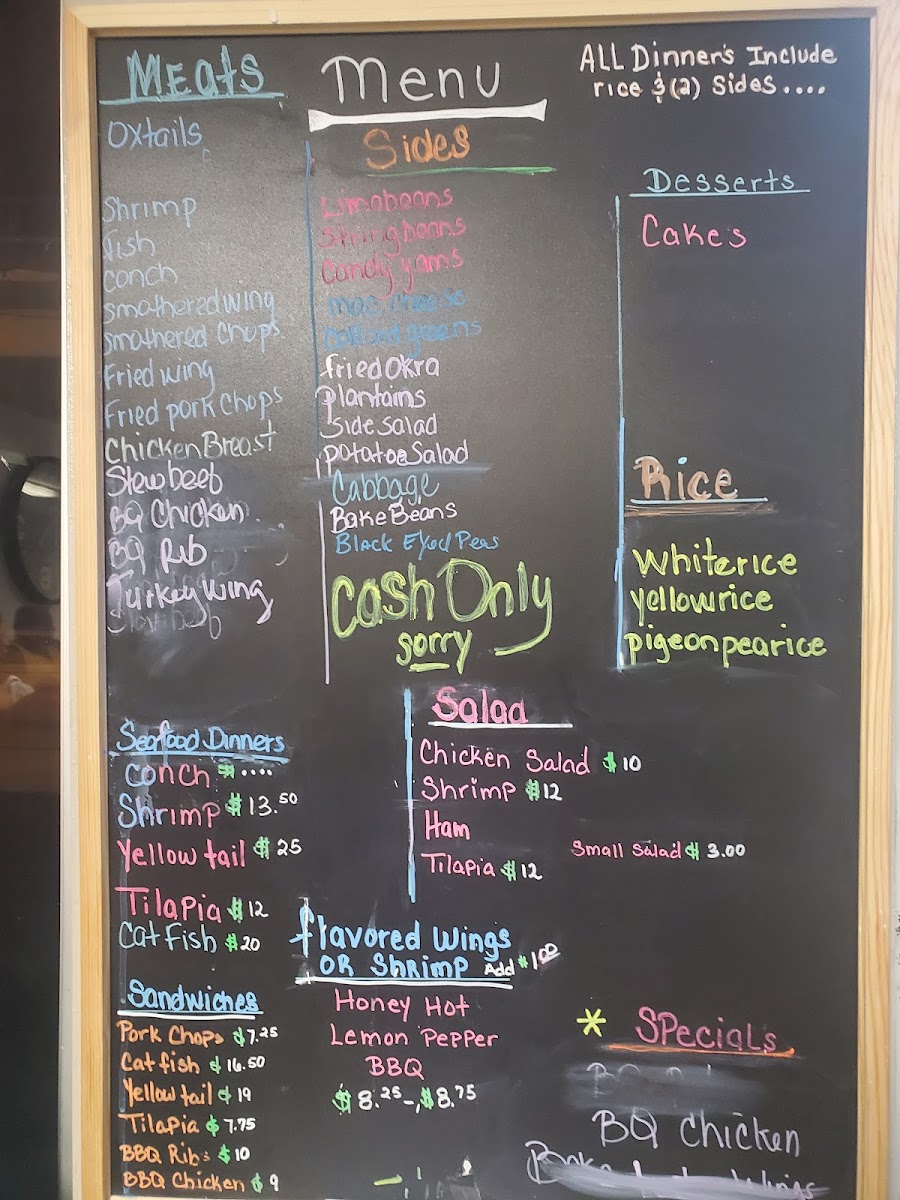 Meats
Oxtails
Shrimp
Fish
Conch
Smothered wing
Smothered Chops
Fried wing
Fried pork Chops
Chicken Breast
Stew beef
BQ Chicken
BQ Rib
Turkey Wing
Menu
Sides
Limabeans
String beans
Candy yams
mac cheese
Collard greens
fried Okra
plantains
Side Salad
potatoe Salad
Cabbage
Bake Beans
Black Eyed Peas
Cash Only
sorry
ALL Dinner's Include
rice & (2) Sides....
Desserts
Cakes
Rice
White rice
yellow rice
pigeon pea rice
Seafood Dinners
Conch $....
Shrimp $13.50
Yellow tail $25
Tilapia $12
Cat Fish $20
Salad
Chicken Salad $10
Shrimp $12
Ham
Tilapia $12
Small Salad $3.00
Sandwiches
Pork Chops $7.25
Cat fish $16.50
Yellow tail $19
Tilapia $7.75
BBQ Ribs $10
BBQ Chicken $9
flavored Wings
OR Shrimp Add $1.00
Honey Hot
Lemon Pepper
BBQ
$8.25-$8.75
* Specials
BQ Chicken